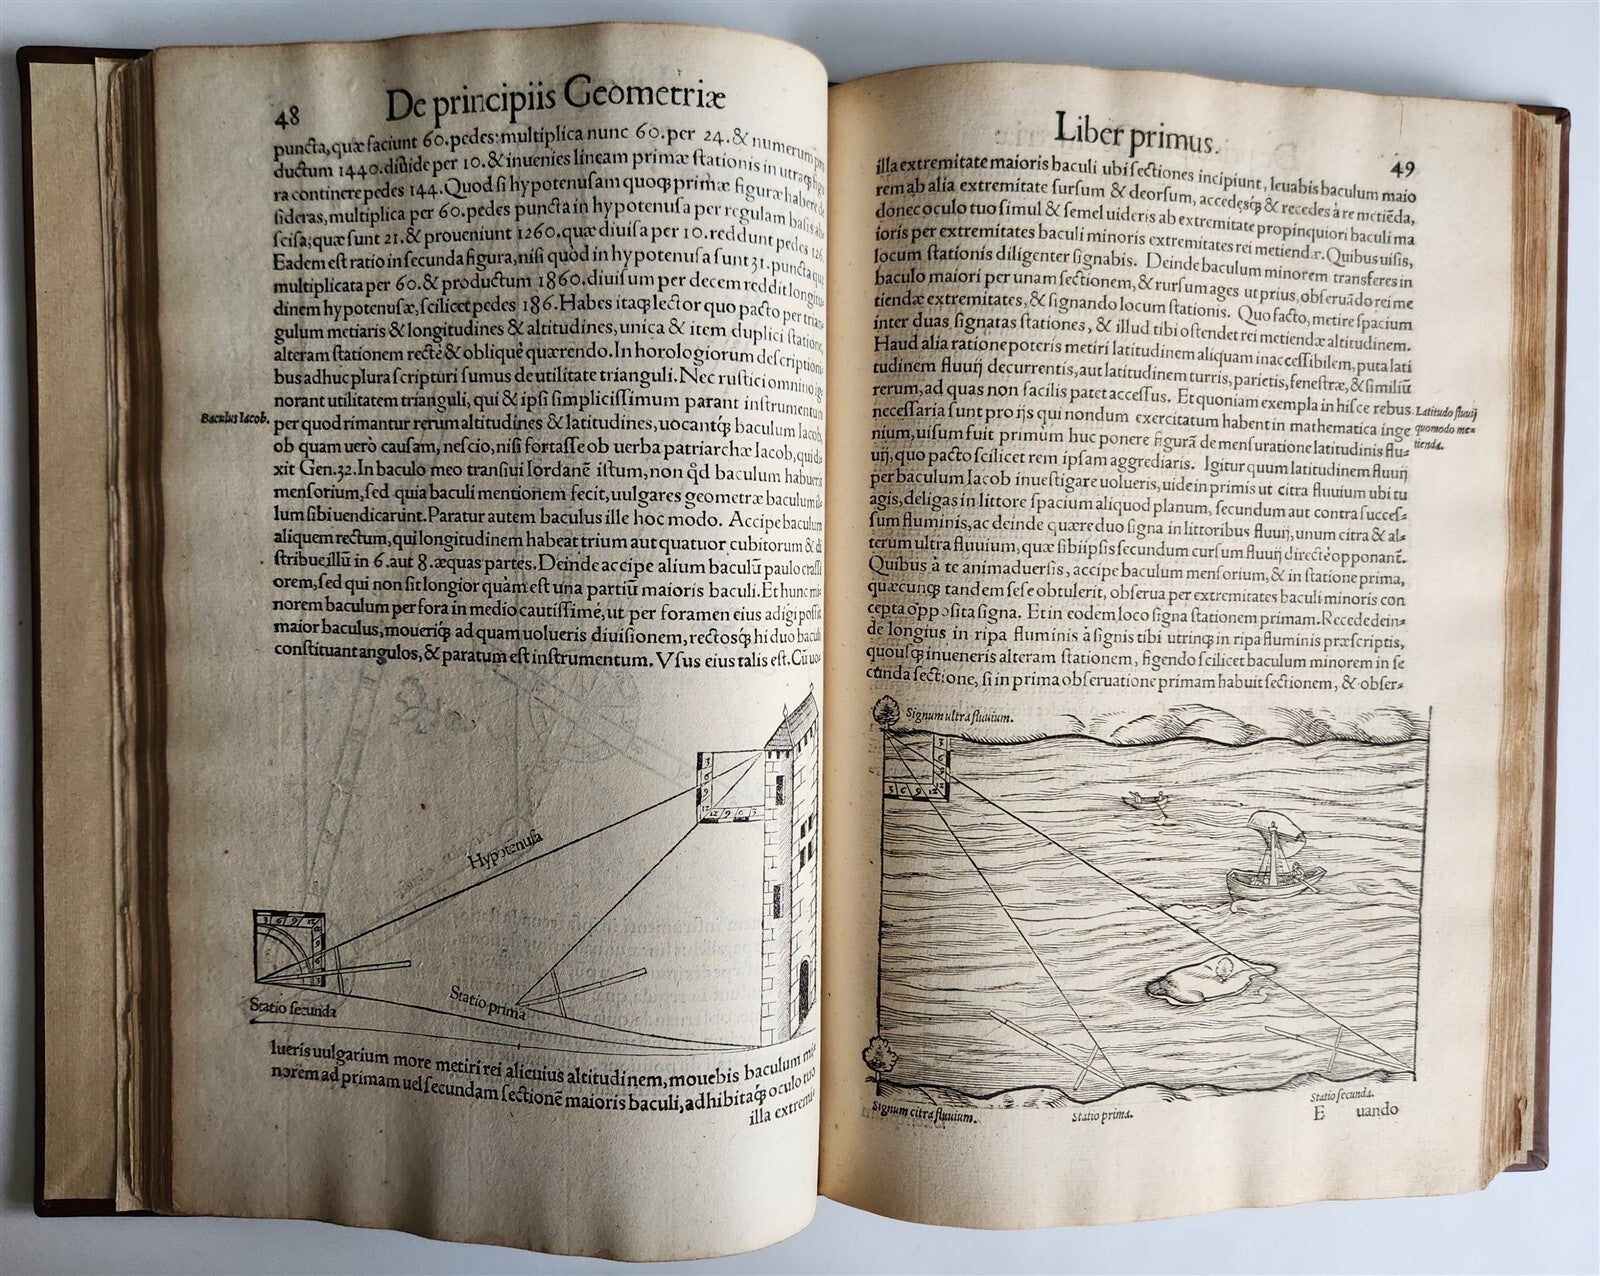 48
De principiis Geometriæ
puncta, quæ faciunt 60. pedes: multiplica nunc 60. per 24. & numerum pro
ductum 1440. diuide per 10. & inuenies lineam primæ stationis in utraq; figu
ra continere pedes 144. Quod si hypotenusam quoq; primæ figuræ habere de
sideras, multiplica per 60. pedes puncta in hypotenusa per regulam basis abs
scisa; quæ sunt 21. & proueniunt 1260. quæ diuisa per 10. reddunt pedes 126.
Eadem est ratio in secunda figura, nisi quòd in hypotenusa sunt 31. puncta quæ
multiplicata per 60. & productum 1860. diuisum per decem reddit longitu
dinem hypotenusæ, scilicet pedes 186. Habes itaq; lector quo pacto per trian
gulum metiaris & longitudines & altitudines, unica & item duplici statione,
alteram stationem rectè & obliquè quærendo. In horologiorum descriptioni
bus adhuc plura scripturi sumus de utilitate trianguli. Nec rustici omnino ig
norant utilitatem trianguli, qui & ipsi simplicissimum parant instrumentum
Baculus Iacob.
per quod rimantur rerum altitudines & latitudines, uocantq; baculum Iacob,
ob quam uerò causam, nescio, nisi fortasse ob uerba patriarchæ Iacob, qui di-
xit Gen. 32. In baculo meo transiui Iordanē istum, non qd baculum habuerit
mensorium, sed quia baculi mentionem fecit, uulgares geometræ baculum il-
lum sibi uendicarunt. Paratur autem baculus ille hoc modo. Accipe baculum
aliquem rectum, qui longitudinem habeat trium aut quatuor cubitorum & di
stribue illū in 6. aut 8. æquas partes. Deinde accipe alium baculū paulo crassi
orem, sed qui non sit longior quàm est una partiū maioris baculi. Et hunc mi-
norem baculum perfora in medio cautissimè, ut per foramen eius adigi possit
maior baculus, moueriq; ad quam uolueris diuisionem, rectosq; hi duo baculi
constituant angulos, & paratum est instrumentum. Vsus eius talis est. Cū uo-
Hypotenusa
Statio secunda
Statio prima
lueris uulgarium more metiri rei alicuius altitudinem, mouebis baculum mi-
norem ad primam uel secundam sectionē maioris baculi, adhibitaq; oculo tuo
illa extremi-
Liber primus.
49
illa extremitate maioris baculi ubi sectiones incipiunt, leuabis baculum maio
rem ab alia extremitate sursum & deorsum, accedesq; & recedes à re metiēda,
donec oculo tuo simul & semel uideris ab extremitate propinquiori baculi ma
ioris per extremitates baculi minoris extremitates rei metiendæ. Quibus uisis,
locum stationis diligenter signabis. Deinde baculum minorem transferes in
baculo maiori per unam sectionem, & rursum ages ut prius, obseruādo rei me
tiendæ extremitates, & signando locum stationis. Quo facto, metire spacium
inter duas signatas stationes, & illud tibi ostendet rei metiendæ altitudinem.
Haud alia ratione poteris metiri latitudinem aliquam inaccessibilem, puta lati
tudinem fluuij decurrentis, aut latitudinem turris, parietis, fenestræ, & similiū
rerum, ad quas non facilis patet accessus. Et quoniam exempla in hisce rebus
necessaria sunt pro ijs qui nondum exercitatum habent in mathematica inge
Latitudo fluuij
quomodo me-
tienda.
nium, uisum fuit primum huc ponere figurā de mensuratione latitudinis flu-
uij, quo pacto scilicet rem ipsam aggrediaris. Igitur quum latitudinem fluuij
per baculum Iacob inuestigare uolueris, uide in primis ut citra fluuium ubi tu
agis, deligas in littore spacium aliquod planum, secundum aut contra succes-
sum fluminis, ac deinde quære duo signa in littoribus fluuij, unum citra & al-
terum ultra fluuium, quæ sibi ipsis secundum cursum fluuij directè opponant.
Quibus à te animaduersis, accipe baculum mensorium, & in statione prima,
quæcunq; tandem sese obtulerit, obserua per extremitates baculi minoris con
cepta opposita signa. Et in eodem loco signa stationem primam. Recede dein-
de longius in ripa fluminis à signis tibi utrinq; in ripa fluminis præscriptis,
quousq; inueneris alteram stationem, figendo scilicet baculum minorem in se
cunda sectione, si in prima obseruatione primam habuit sectionem, & obser-
Signum ultra fluuium.
Signum citra fluuium.
Statio prima.
Statio secunda.
E uando